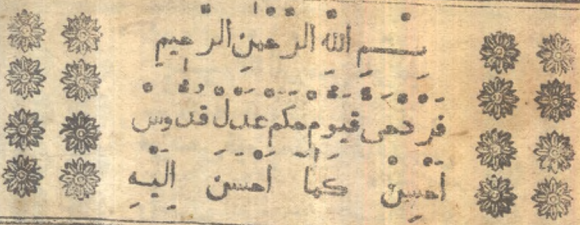 بسم الله الرحمن الرحيم
فرد حي قيوم حكم عدل قدوس
أحسن كما أحسن إليه